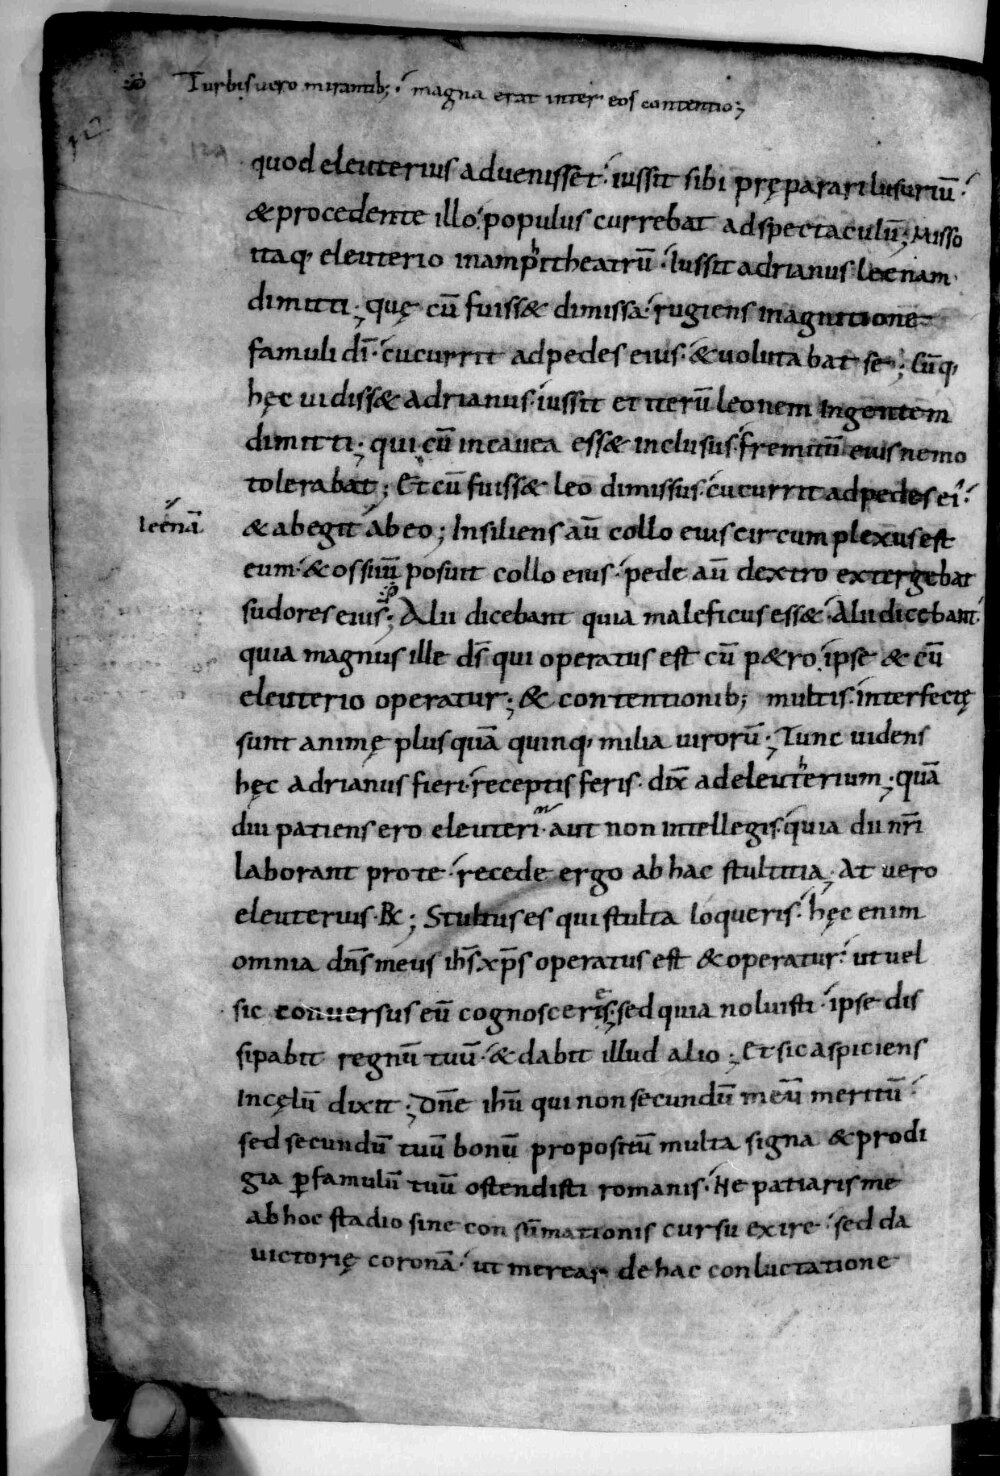 Turbis uero mirantib; magna erat inter eos contentio;
quod eleuterius aduenisset· iussit sibi pręparari lusuriū·
& procedente illo· populus currebat ad spectaculū; Misso
itaq· eleuterio in ampithheatrū· Iussit adrianus leenam
dimitti; quę cū fuiss& dimissa· rugiens magnitione
famuli dī· cucurrit ad pedes eius· & uolutabat se; Cūq·
hęc uidiss& adrianus· iussit et iterū leonem Ingentem
dimitti; qui cū in cauea ess& inclusus· fremitū eius nemo
tolerabat; Et cū fuiss& leo dimissus· cucurrit ad pedes ei·
leenā
& abegit ab eo; Insiliens aū collo eius circumplexus est
eum· & os suū posuit collo eius· pede aū dextro extergebat
sudores eius; Alii dicebant quia maleficus ess&· Alii dicebant·
quia magnus ille ds̄ qui operatus est cū p&ro· ipse & cū
eleuterio operatur; & contentionib; multis· interfectę
sunt animę plus quā quinq· milia uirorū; Tunc uidens
hęc adrianus fieri· receptis feris· dix̄ ad eleutherium; quā
diu patiens ero eleuteri· aut non intellegis· quia dii nr̄i
laborant pro te· recede ergo ab hac stultitia; At uero
eleuterius· R̄; Stultus es qui stulta loqueris· hęc enim
omnia dn̄s meus ih̄s xp̄s operatus est & operatur· ut uel
sic conuersus eū cognosceres; sed quia noluisti· ipse dis
sipabit regnū tuū· & dabit illud alio; Et sic aspiciens
In cęlū dixit; Dn̄e ih̄u qui non secundū meū meritū·
sed secundū tuū bonū propositū multa signa & prodi
gia ꝑ famulū tuū ostendisti romanis· Ne patiaris me
ab hoc stadio sine consūmationis cursu exire· sed da
uictorię coronā· ut merear de hac conluctatione